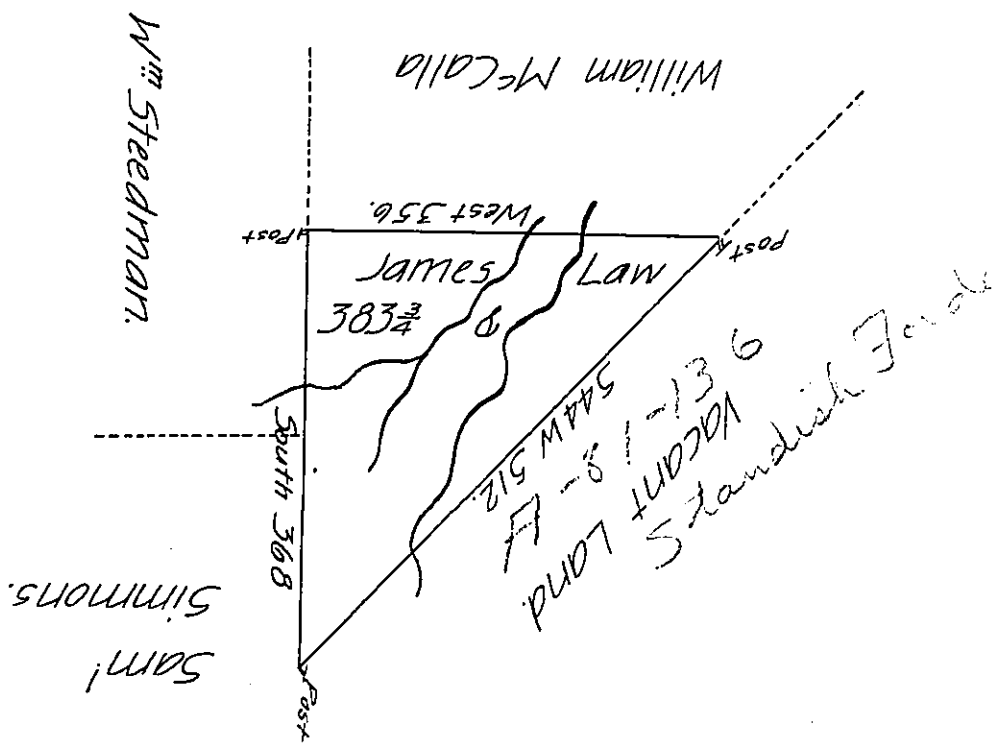 Wm Steedman.
William McCalla
West 356.
Post
Post
James Law
383¾ a
South 368
S44W 512.
A-81-136
Vacant Land.
Standish
Saml
Simmons.
Post